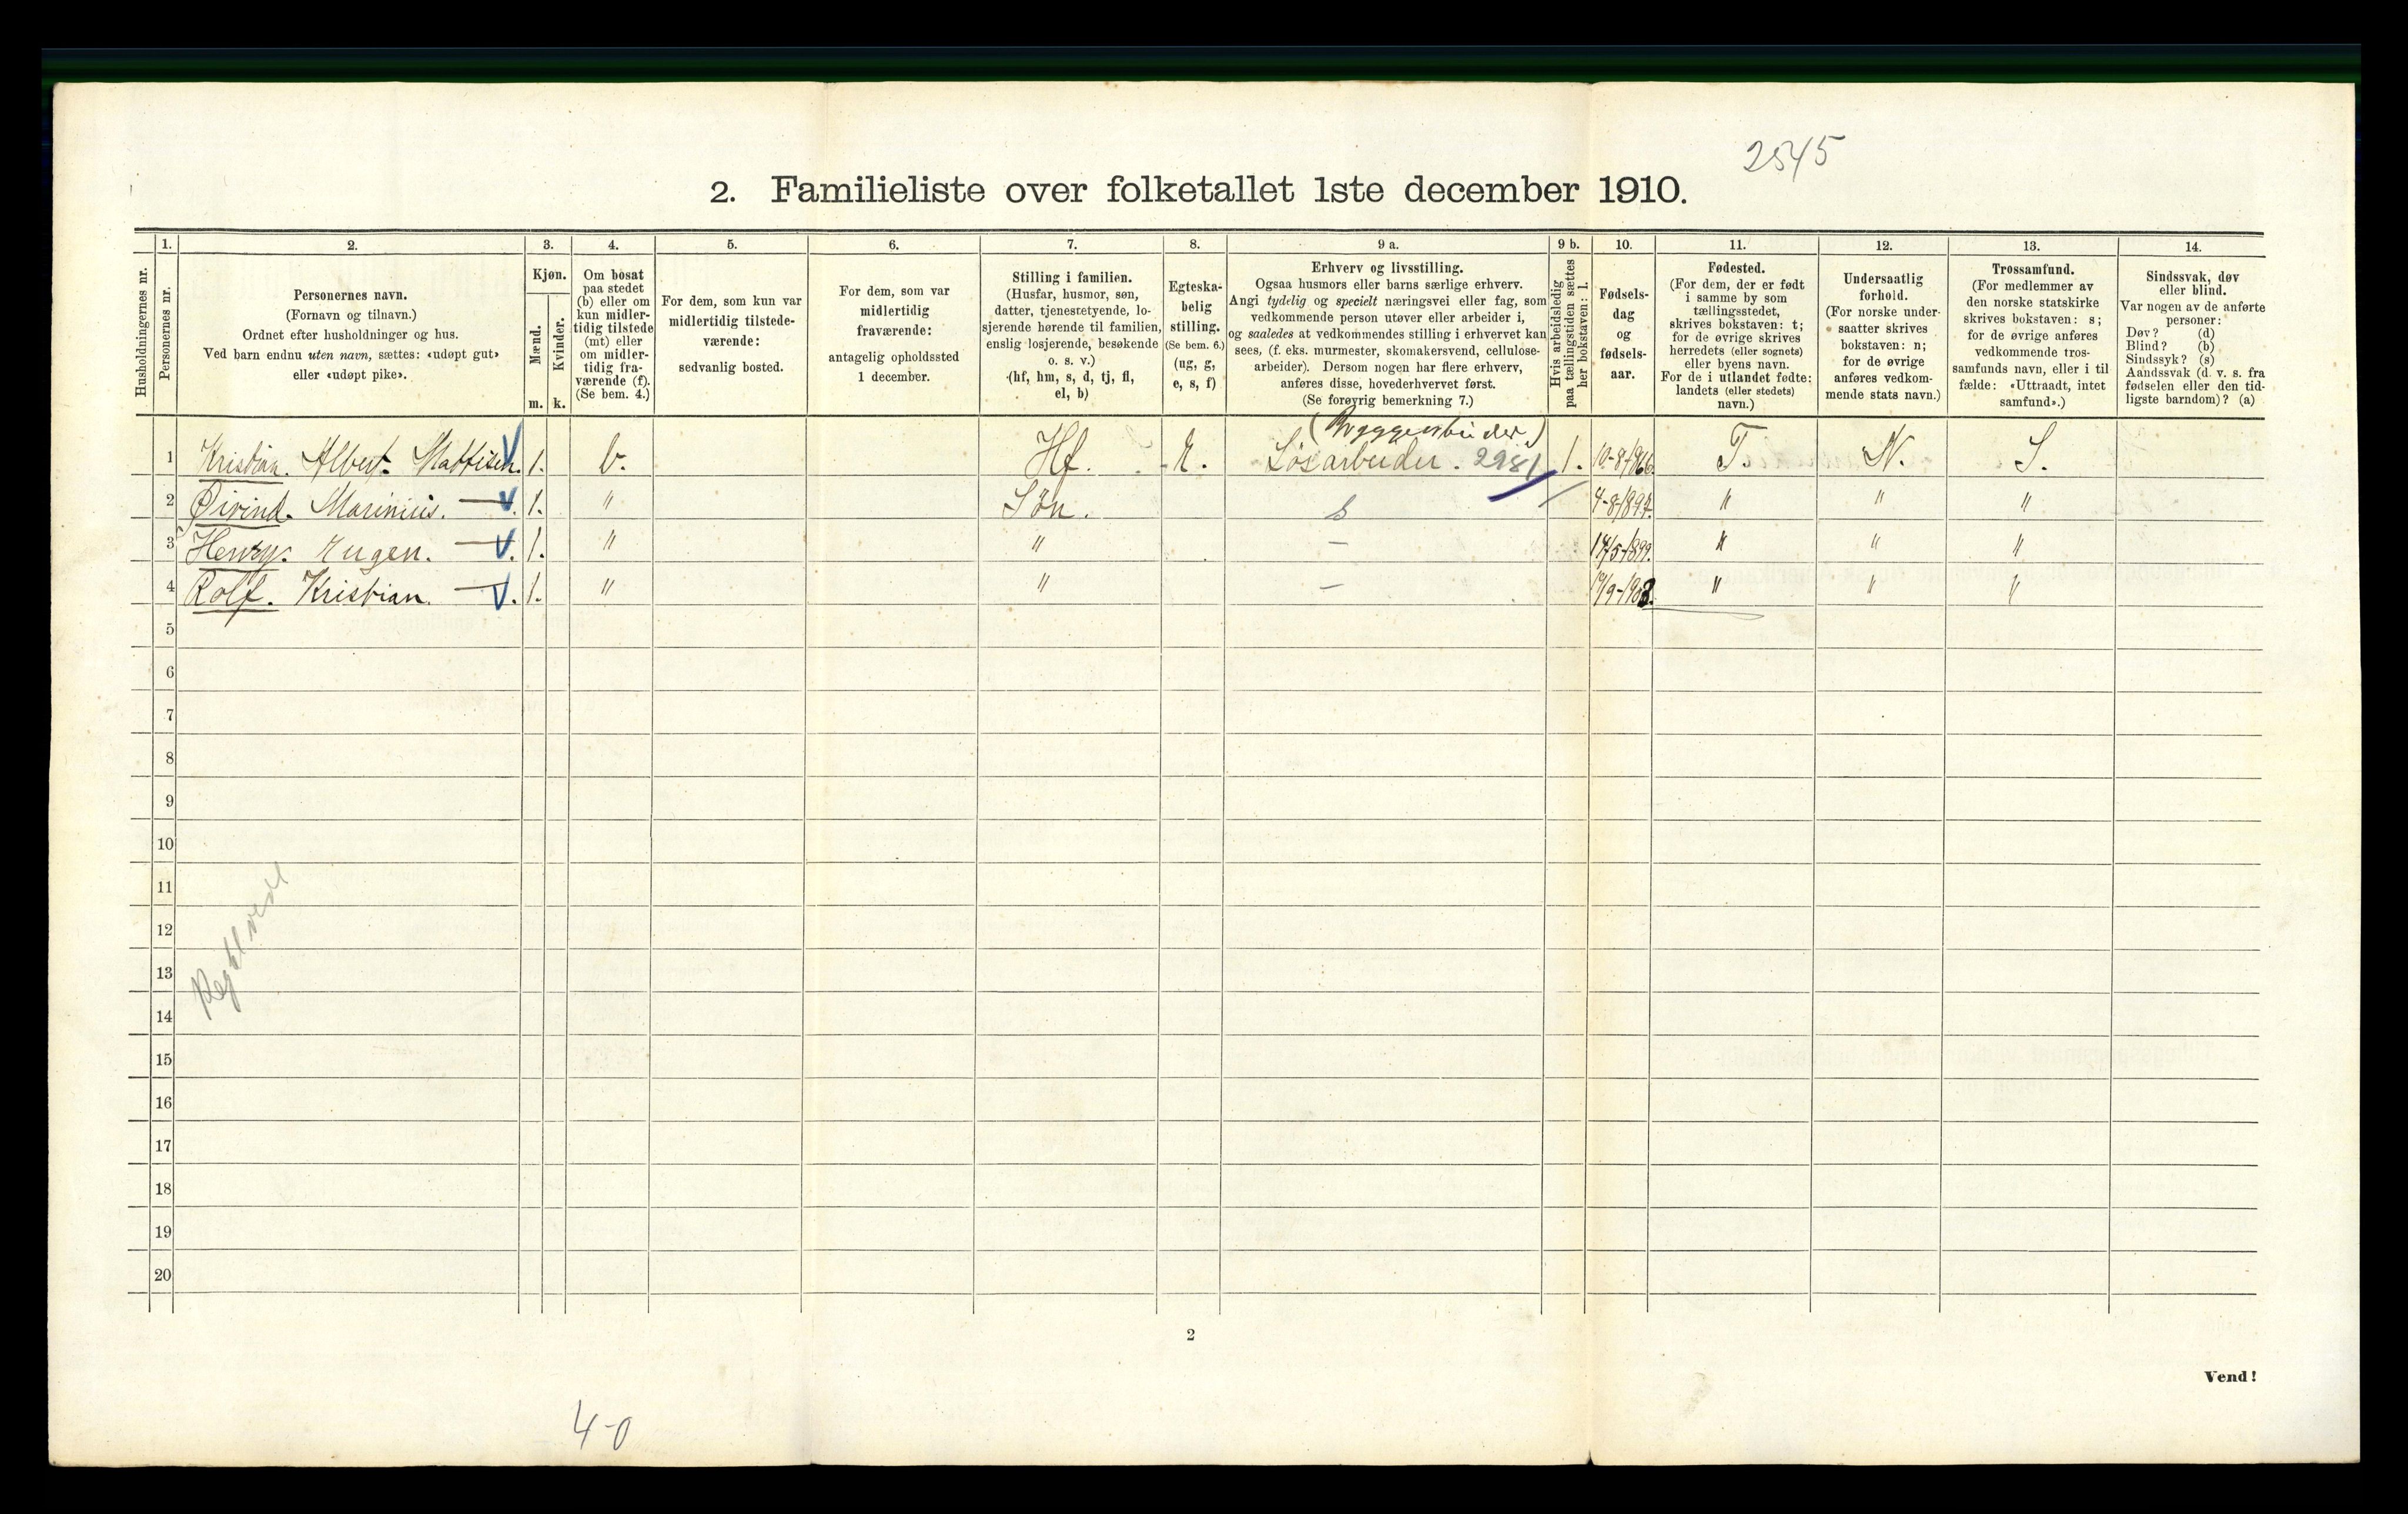 2545
2. Familieliste over folketallet 1ste december 1910.
1. 2. 3. 4. 5. 6. 7. 8. 9 a. 9 b. 10. 11. 12. 13. 14.
Husholdningernes nr.
Personernes nr.
Personernes navn.
(Fornavn og tilnavn.)
Ordnet efter husholdninger og hus.
Ved barn endnu uten navn, sættes: «udøpt gut»
eller «udøpt pike».
Kjøn.
Mænd.
m.
Kvinder.
k.
Om bosat
paa stedet
(b) eller om
kun midler-
tidig tilstede
(mt) eller
om midler-
tidig fra-
værende (f).
(Se bem. 4.)
For dem, som kun var
midlertidig tilstede-
værende:
sedvanlig bosted.
For dem, som var
midlertidig
fraværende:
antagelig opholdssted
1 december.
Stilling i familien.
(Husfar, husmor, søn,
datter, tjenestetyende, lo-
sjerende hørende til familien,
enslig losjerende, besøkende
o. s. v.)
(hf, hm, s, d, tj, fl,
el, b)
Egteska-
belig
stilling.
(Se bem. 6.)
(ug, g,
e, s, f)
Erhverv og livsstilling.
Ogsaa husmors eller barns særlige erhverv.
Angi tydelig og specielt næringsvei eller fag, som
vedkommende person utøver eller arbeider i,
og saaledes at vedkommendes stilling i erhvervet kan
sees, (f. eks. murmester, skomakersvend, cellulose-
arbeider). Dersom nogen har flere erhverv,
anføres disse, hovederhvervet først.
(Se forøvrig bemerkning 7.)
Hvis arbeidsledig
paa tællingstiden sættes
her bokstaven: l.
Fødsels-
dag
og
fødsels-
aar.
Fødested.
(For dem, der er født
i samme by som
tællingsstedet,
skrives bokstaven: t;
for de øvrige skrives
herredets (eller sognets)
eller byens navn.
For de i utlandet fødte:
landets (eller stedets)
navn.)
Undersaatlig
forhold.
(For norske under-
saatter skrives
bokstaven: n;
for de øvrige
anføres vedkom-
mende stats navn.)
Trossamfund.
(For medlemmer av
den norske statskirke
skrives bokstaven: s;
for de øvrige anføres
vedkommende tros-
samfunds navn, eller i til-
fælde: «Uttraadt, intet
samfund».)
Sindssvak, døv
eller blind.
Var nogen av de anførte
personer:
Døv? (d)
Blind? (b)
Sindssyk? (s)
Aandssvak (d. v. s. fra
fødselen eller den tid-
ligste barndom)? (a)
(Byggearbeider)
1 Kristian. Albert. Mattisen. 1. b. Hf. E. Løsarbeider. 2981 1. 10-8-1866. T. N. S.
2 Øivind. Marinius. — 1. " Søn. s 4-8-1897. " " "
3 Henry. Eugen. — 1. " " — 14/5-1899. " " "
4 Rolf. Kristian. — 1. " " — 19/9-1903. " " "
5
6
7
8
9
10
11
12
13
14
15
16
17
18
19
20
2
Vend!
4-0